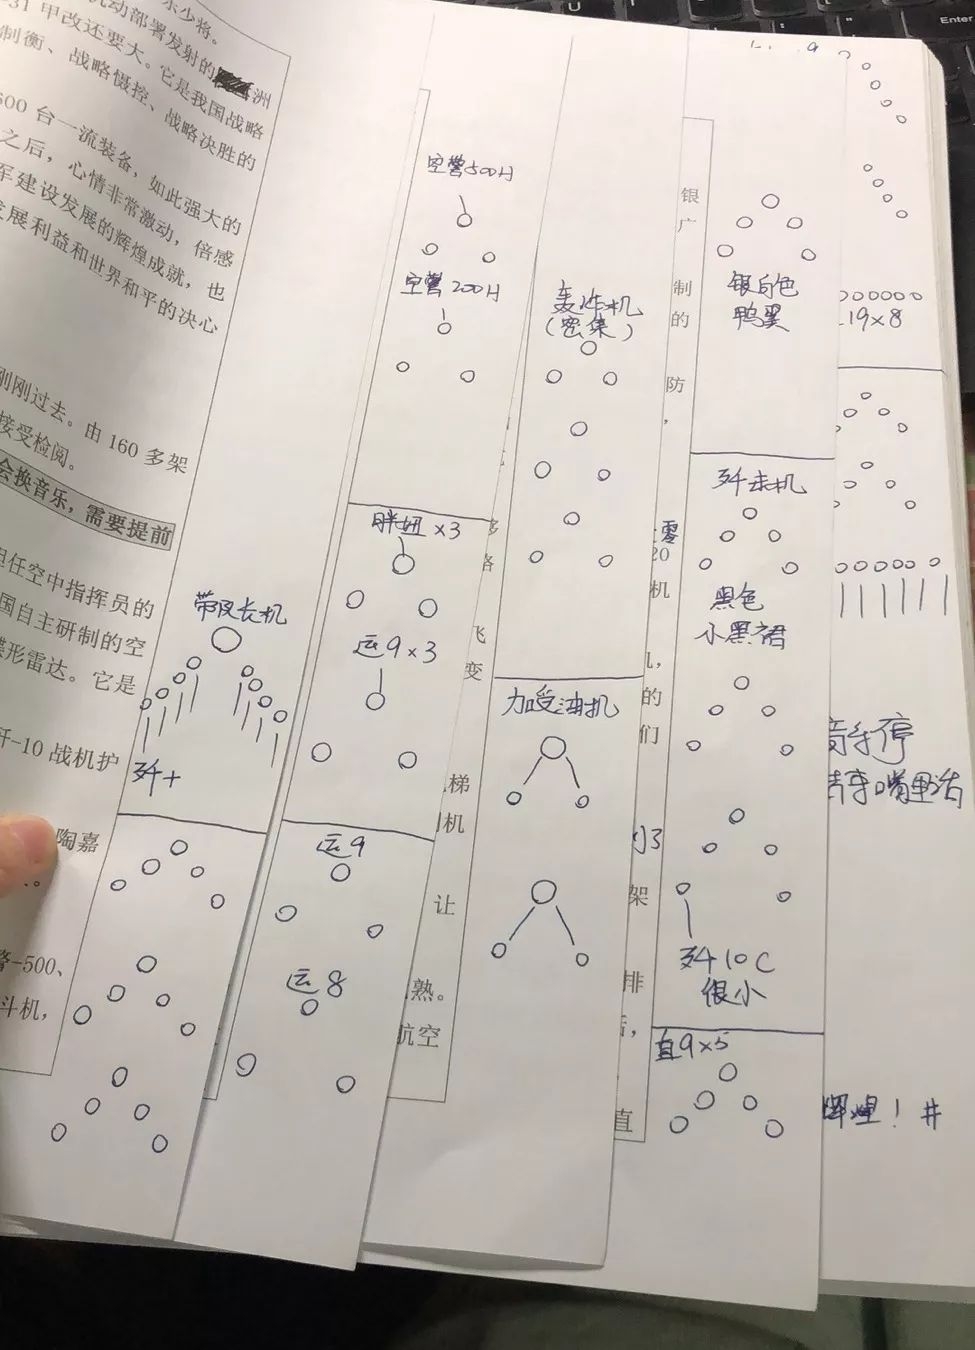 东少将。
机动部署发射的
洲
31甲改还要大。它是我国战略
制衡、战略慑控、战略决胜的
600 台一流装备，如此强大的
之后，心情非常激动，倍感
军建设发展的辉煌成就，也
发展利益和世界和平的决心
刚刚过去。由 160 多架
接受检阅。
会换音乐，需要提前
担任空中指挥员的
国自主研制的空
碟形雷达。它是
歼-10 战机护
陶嘉
警-500、
斗机，
带队长机
歼十
空警500H
空警200H
胖妞×3
运9×3
运9
运8
轰炸机
（密集）
加受油机
飞
变
梯
机
让
熟。
航空
银
广
制
的
防
，
零
20
机
机，
的
们
架
排
直
银白色
鸭翼
歼击机
黑色
小黑裙
歼10C
很小
直9×5
19×8
音乐停
清亭嘴里话
辉煌！#
Enter